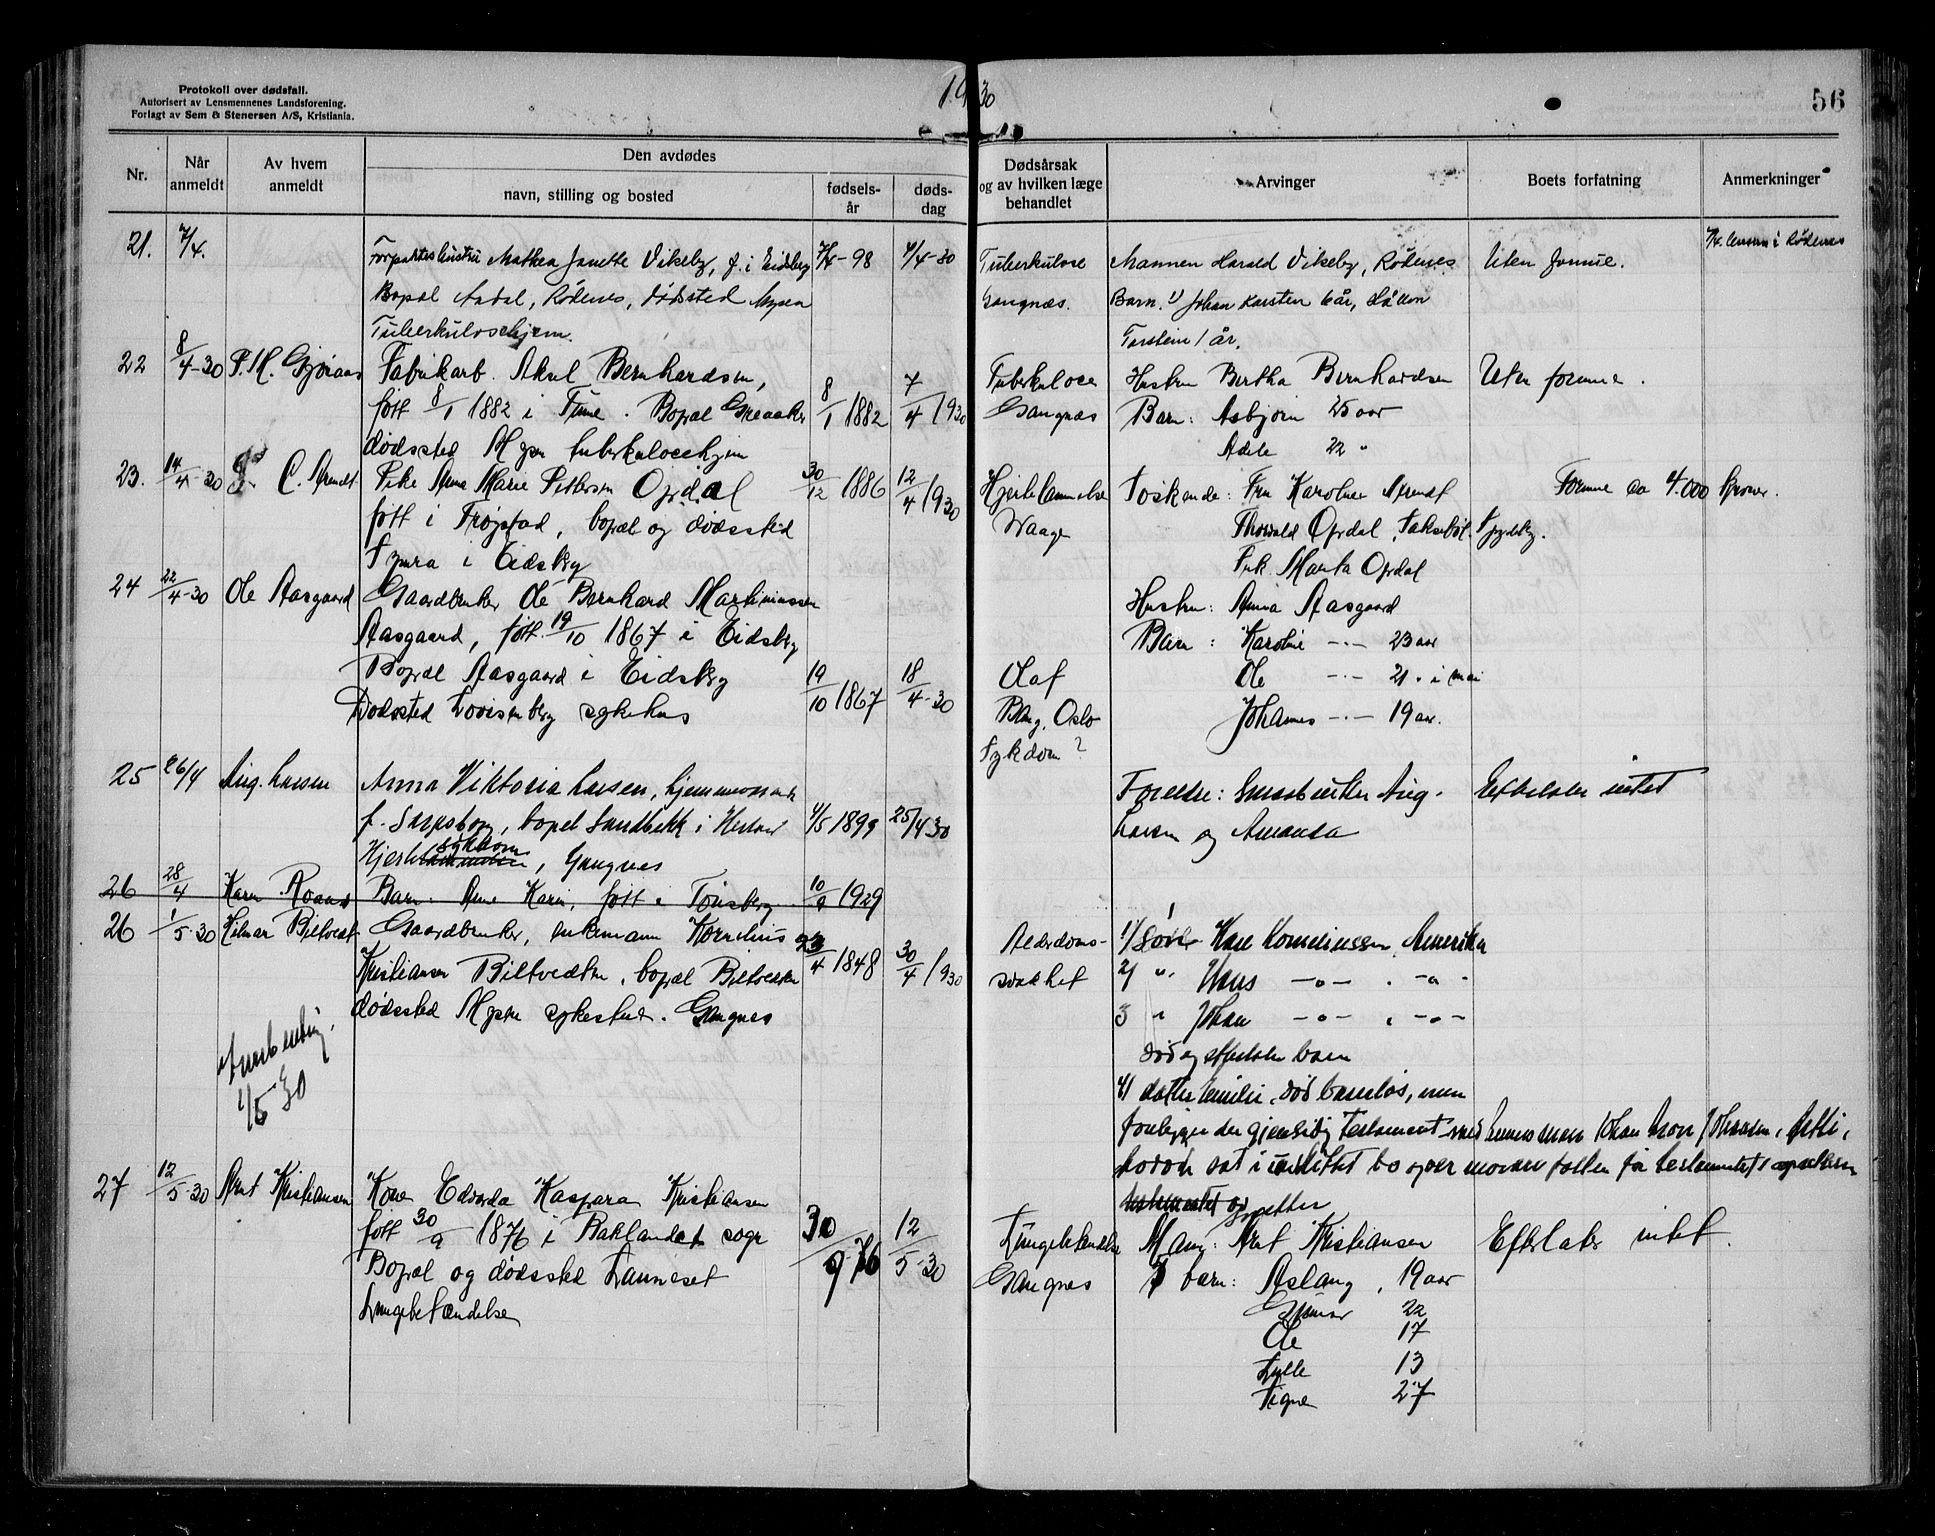 Protokoll over dødsfall.
Autorisert av Lensmennenes Landsforening.
Forlagt av Sem & Stenersen A/S, Kristiania.
1930
56
Nr.
Når anmeldt
Av hvem anmeldt
Den avdødes
navn, stilling og bosted
fødsels-år
døds-dag
Dødsårsak og av hvilken læge behandlet
Arvinger
Boets forfatning
Anmerkninger
21. 7/4. Forpakterhustru Mathea Janette Vikeby, f. i Eidsberg 7/4-98 4/4-30 Tuberkulose Mannen Harald Vikeby, Rödenes Uten formue. 7/4. lensm i Rödenes
Bopæl Aadal, Rödenes, dödsted Mysen Gangnæs. Barn. 1) Johan Karsten 6 år,
Tuberkulosehjem. Torstein 1 år.
22 8/4-30 P. M. Gjöraas Fabrikarb. Aksel Bernhardsen, 8/1 1882 7/4 1930 Tuberkulose Hustru Bertha Bernhardsen Uten formue.
født 8/1 1882 i Tune. Bopæl Greaaker Gangnæs Barn: Asbjörn 25 aar
dødssted Mysen tuberkulosehjem Adele 22 "
23. 14/4-30 C. Arendt Pike Anna Marie Pettersen Opdal 30/12 1886 12/4 1930 Hjertelammelse Søskende: Fru Karoline Arendt Formue ca 4.000 kroner.
født i Trøgstad, bopæl og dødssted Waage Thorvald Opdal, Spydeberg.
i Eidsberg Frk. Marta Opdal
24 22/4-30 Ole Aasgaard Gaardbruker Ole Bernhard Martiniussen Hustru: Anna Aasgaard
Aasgaard, født 19/10 1867 i Eidsberg Barn: Karoline -"- 23 aar
Bopæl Aasgaard i Eidsberg 19/10 1867 18/4-30 Olaf Ole -"- 21 " i mai
Dødssted Lovisenberg sykehus Bang, Oslo Johannes -"- 19 aar.
Sykdom?
25 26/4 Aug. Larsen Anna Viktoria Larsen, hjemmeværende Foreldre: Småbruker Aug. Efterlater intet
f. Sarpsborg, bopel Sandbekk i 4/5 1899 25/4 30 Larsen og Amanda
Hjertesykdom, Gangnes
26 28/4 Karen Barn: Anne Karin, født i Tönsberg 10/9 1929
26 1/5-30 Hilmar Biltvedt Gaardbruker, enkemann Kornelius 23/4 1848 30/4 1930 Alderdoms- 1/ Sönn Karl Korneliussen, Amerika
Kristiansen Biltvedt, bopæl Biltvedt svakhet 2/ " Hans -"- . -"-
dødssted Mysen sykestue. Gangnes 3 " Johan -"- . -"-
1/5 30 død og efterlater barn
4/ datter Emilie, död barnlös, men
foreligger der gjensidig Testament med lensman Johan Aron Johansen,
27 12/5-30 Arnt Kristiansen Kone Edvarda Kaspara Kristiansen
født 30/9 1876 i Baklandet sogn 30/9 76 12/5-30 Lungebetændelse Mann: Arnt Kristiansen Efterlater intet.
Bopæl og dødssted Lanneset Gangnes 5 barn: Aslaug, 19 aar
Lungebetændelse Gunnar 22
Ole 17
Lulle 13
Signe 27